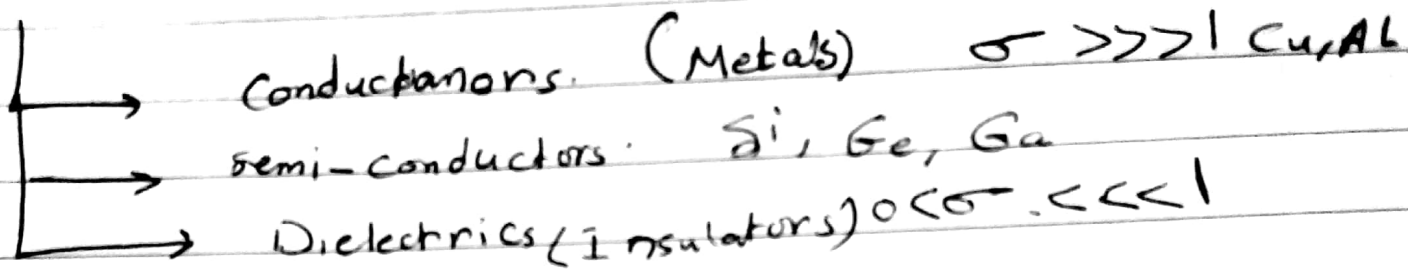 Conductanors. (Metals) σ >>>1 Cu, Al
semi-conductors. Si, Ge, Ga
Dielectrics (Insulators) 0<σ.<<<1